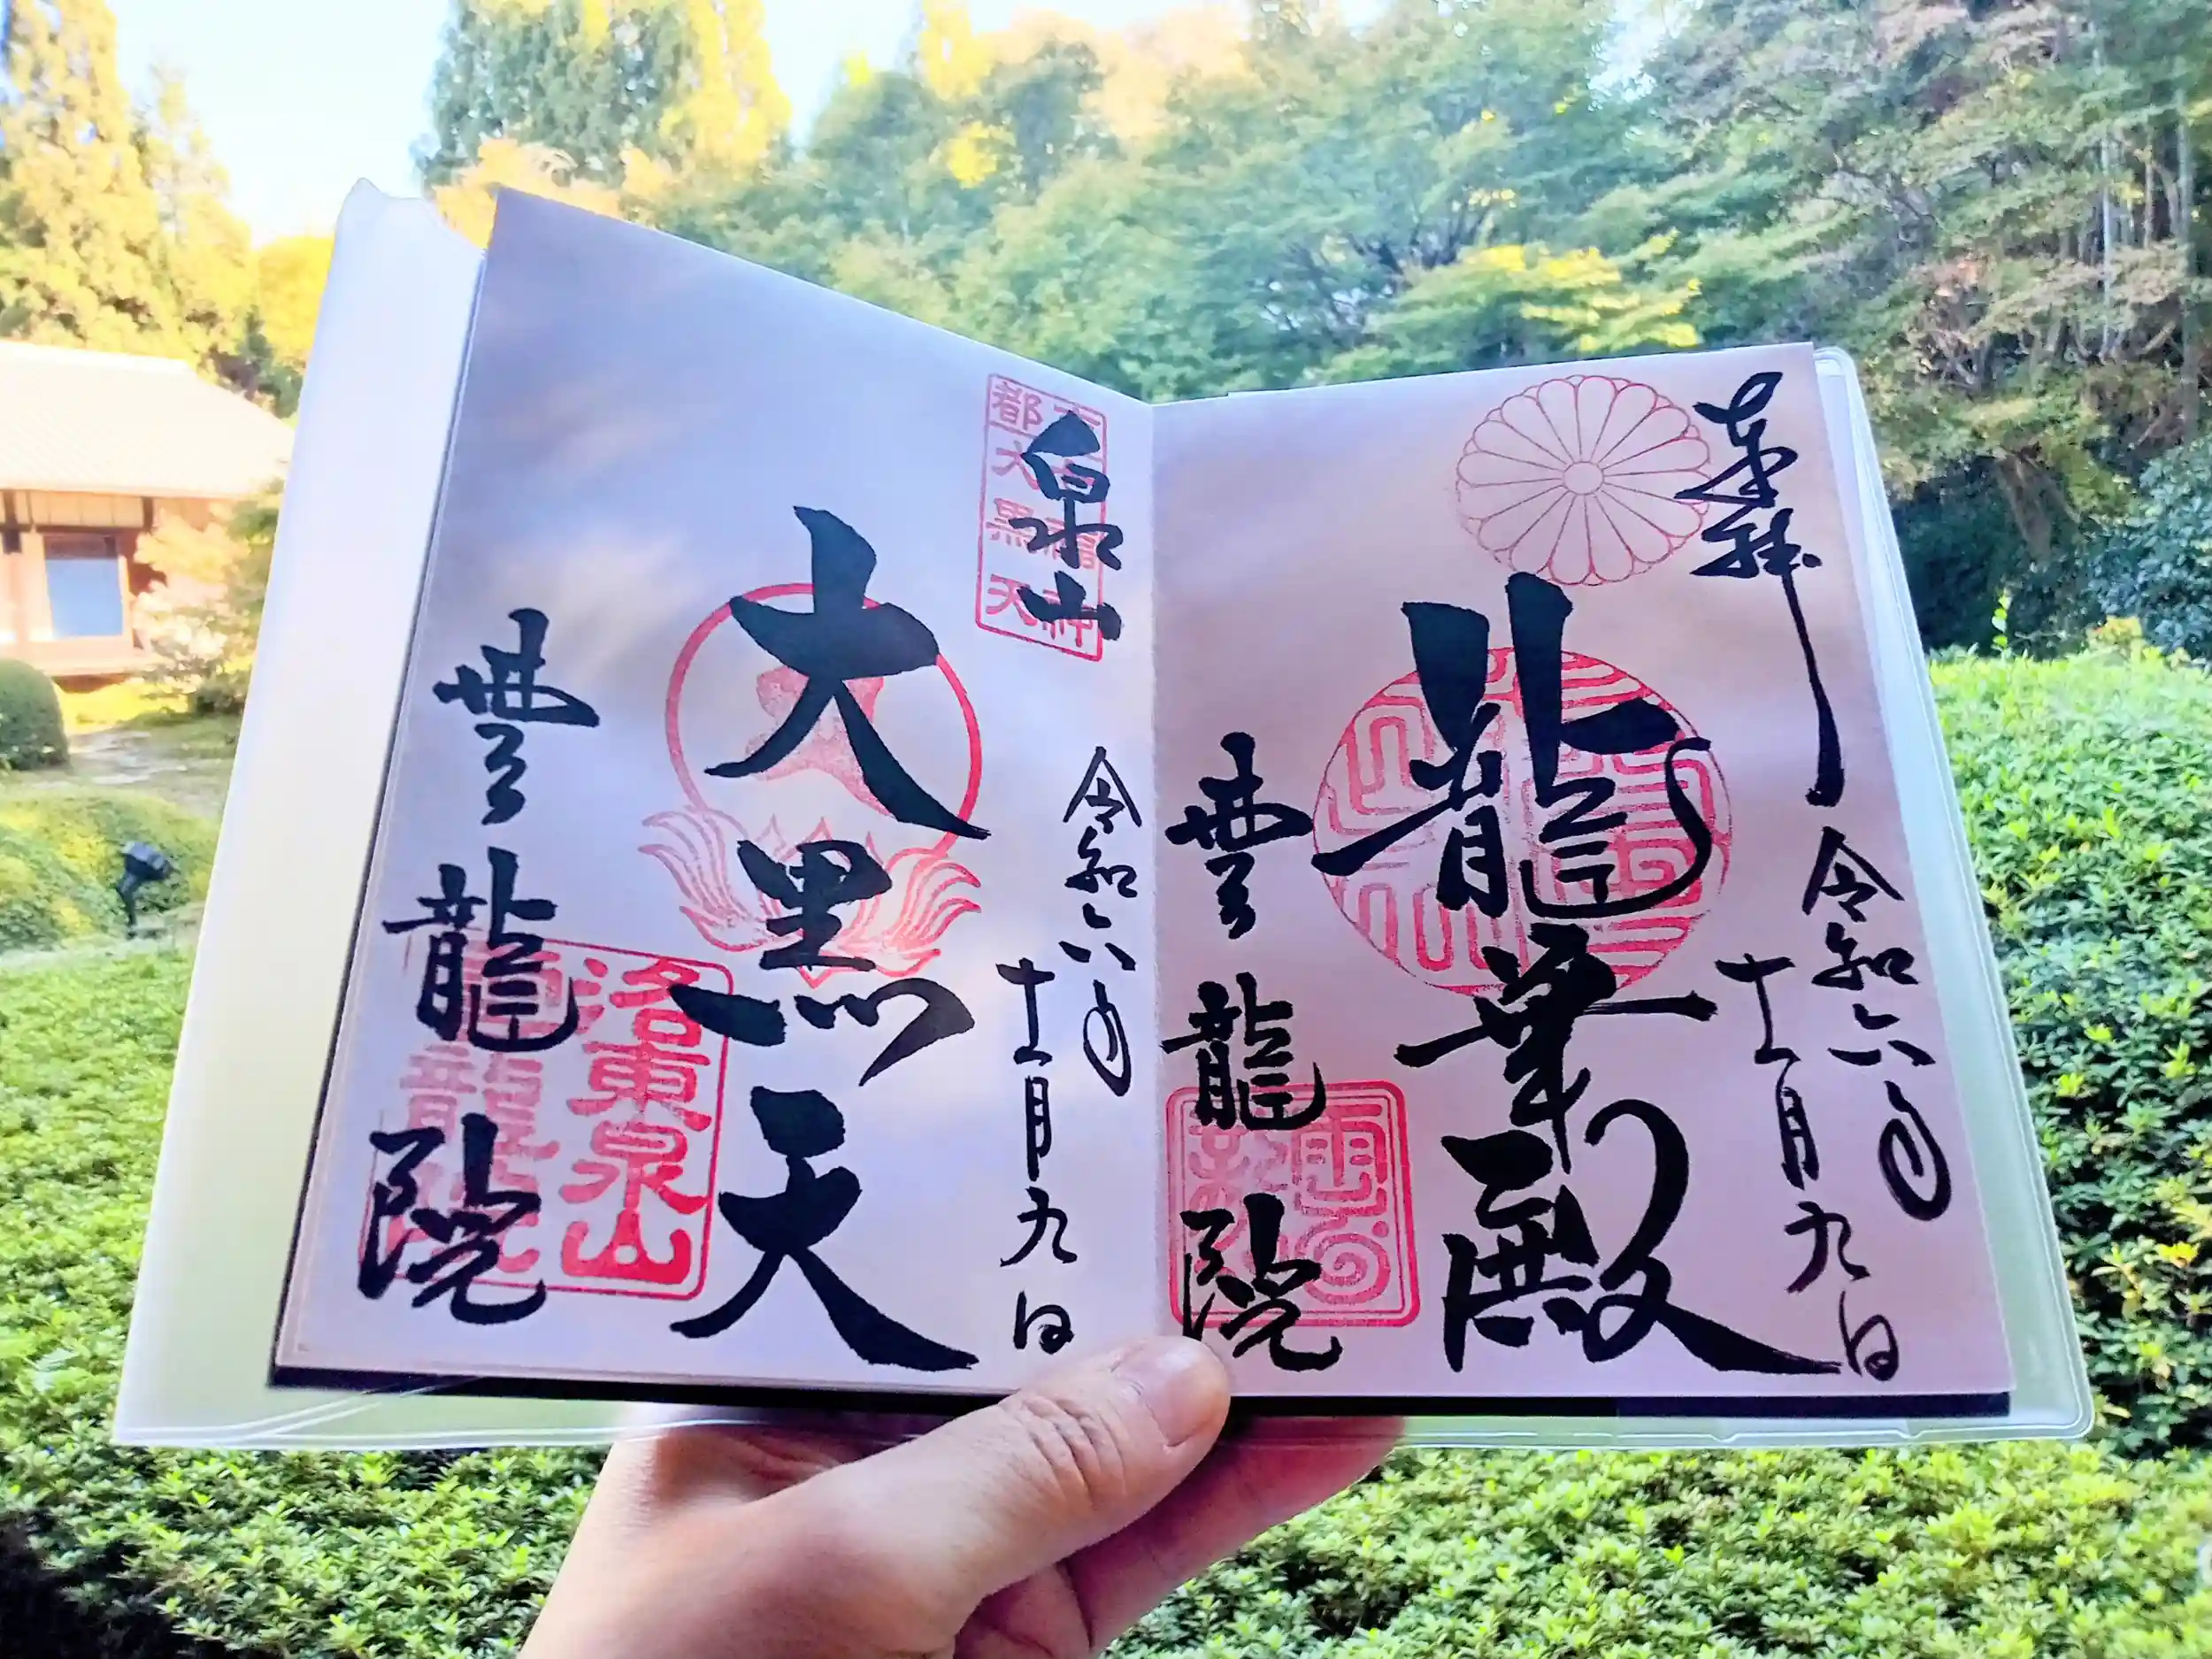 奉拝
令和六年
十一月九日
龍華殿
雲龍院
泉山
令和六年
十一月九日
大黒天
雲龍院
都大黒天
洛東泉山